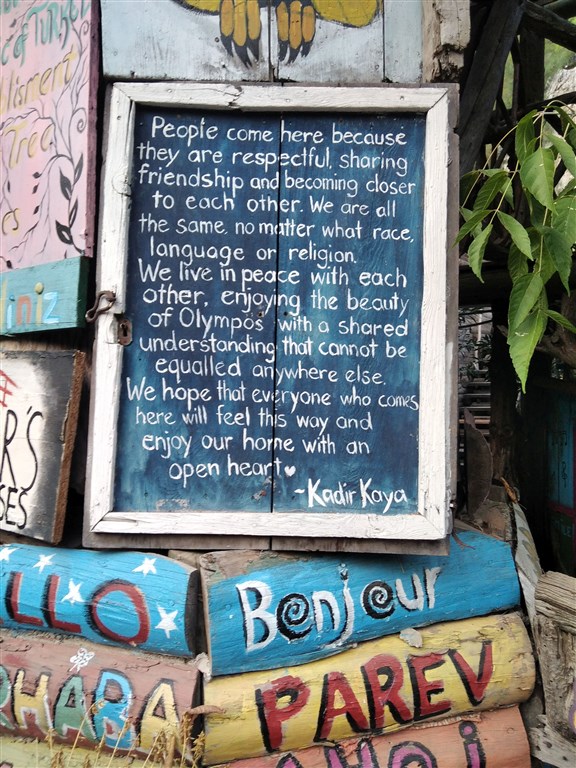 of TURKEY
Tree
People come here because
they are respectful, sharing
friendship and becoming closer
to each other. We are all
the same, no matter what race,
language or religion.
We live in peace with each
other, enjoying the beauty
of Olympos with a shared
understanding that cannot be
equalled anywhere else.
We hope that everyone who comes
here will feel this way and
enjoy our home with an
open heart
~Kadir Kaya
LLO
Bonjour
RHABA
PAREV
AHOj